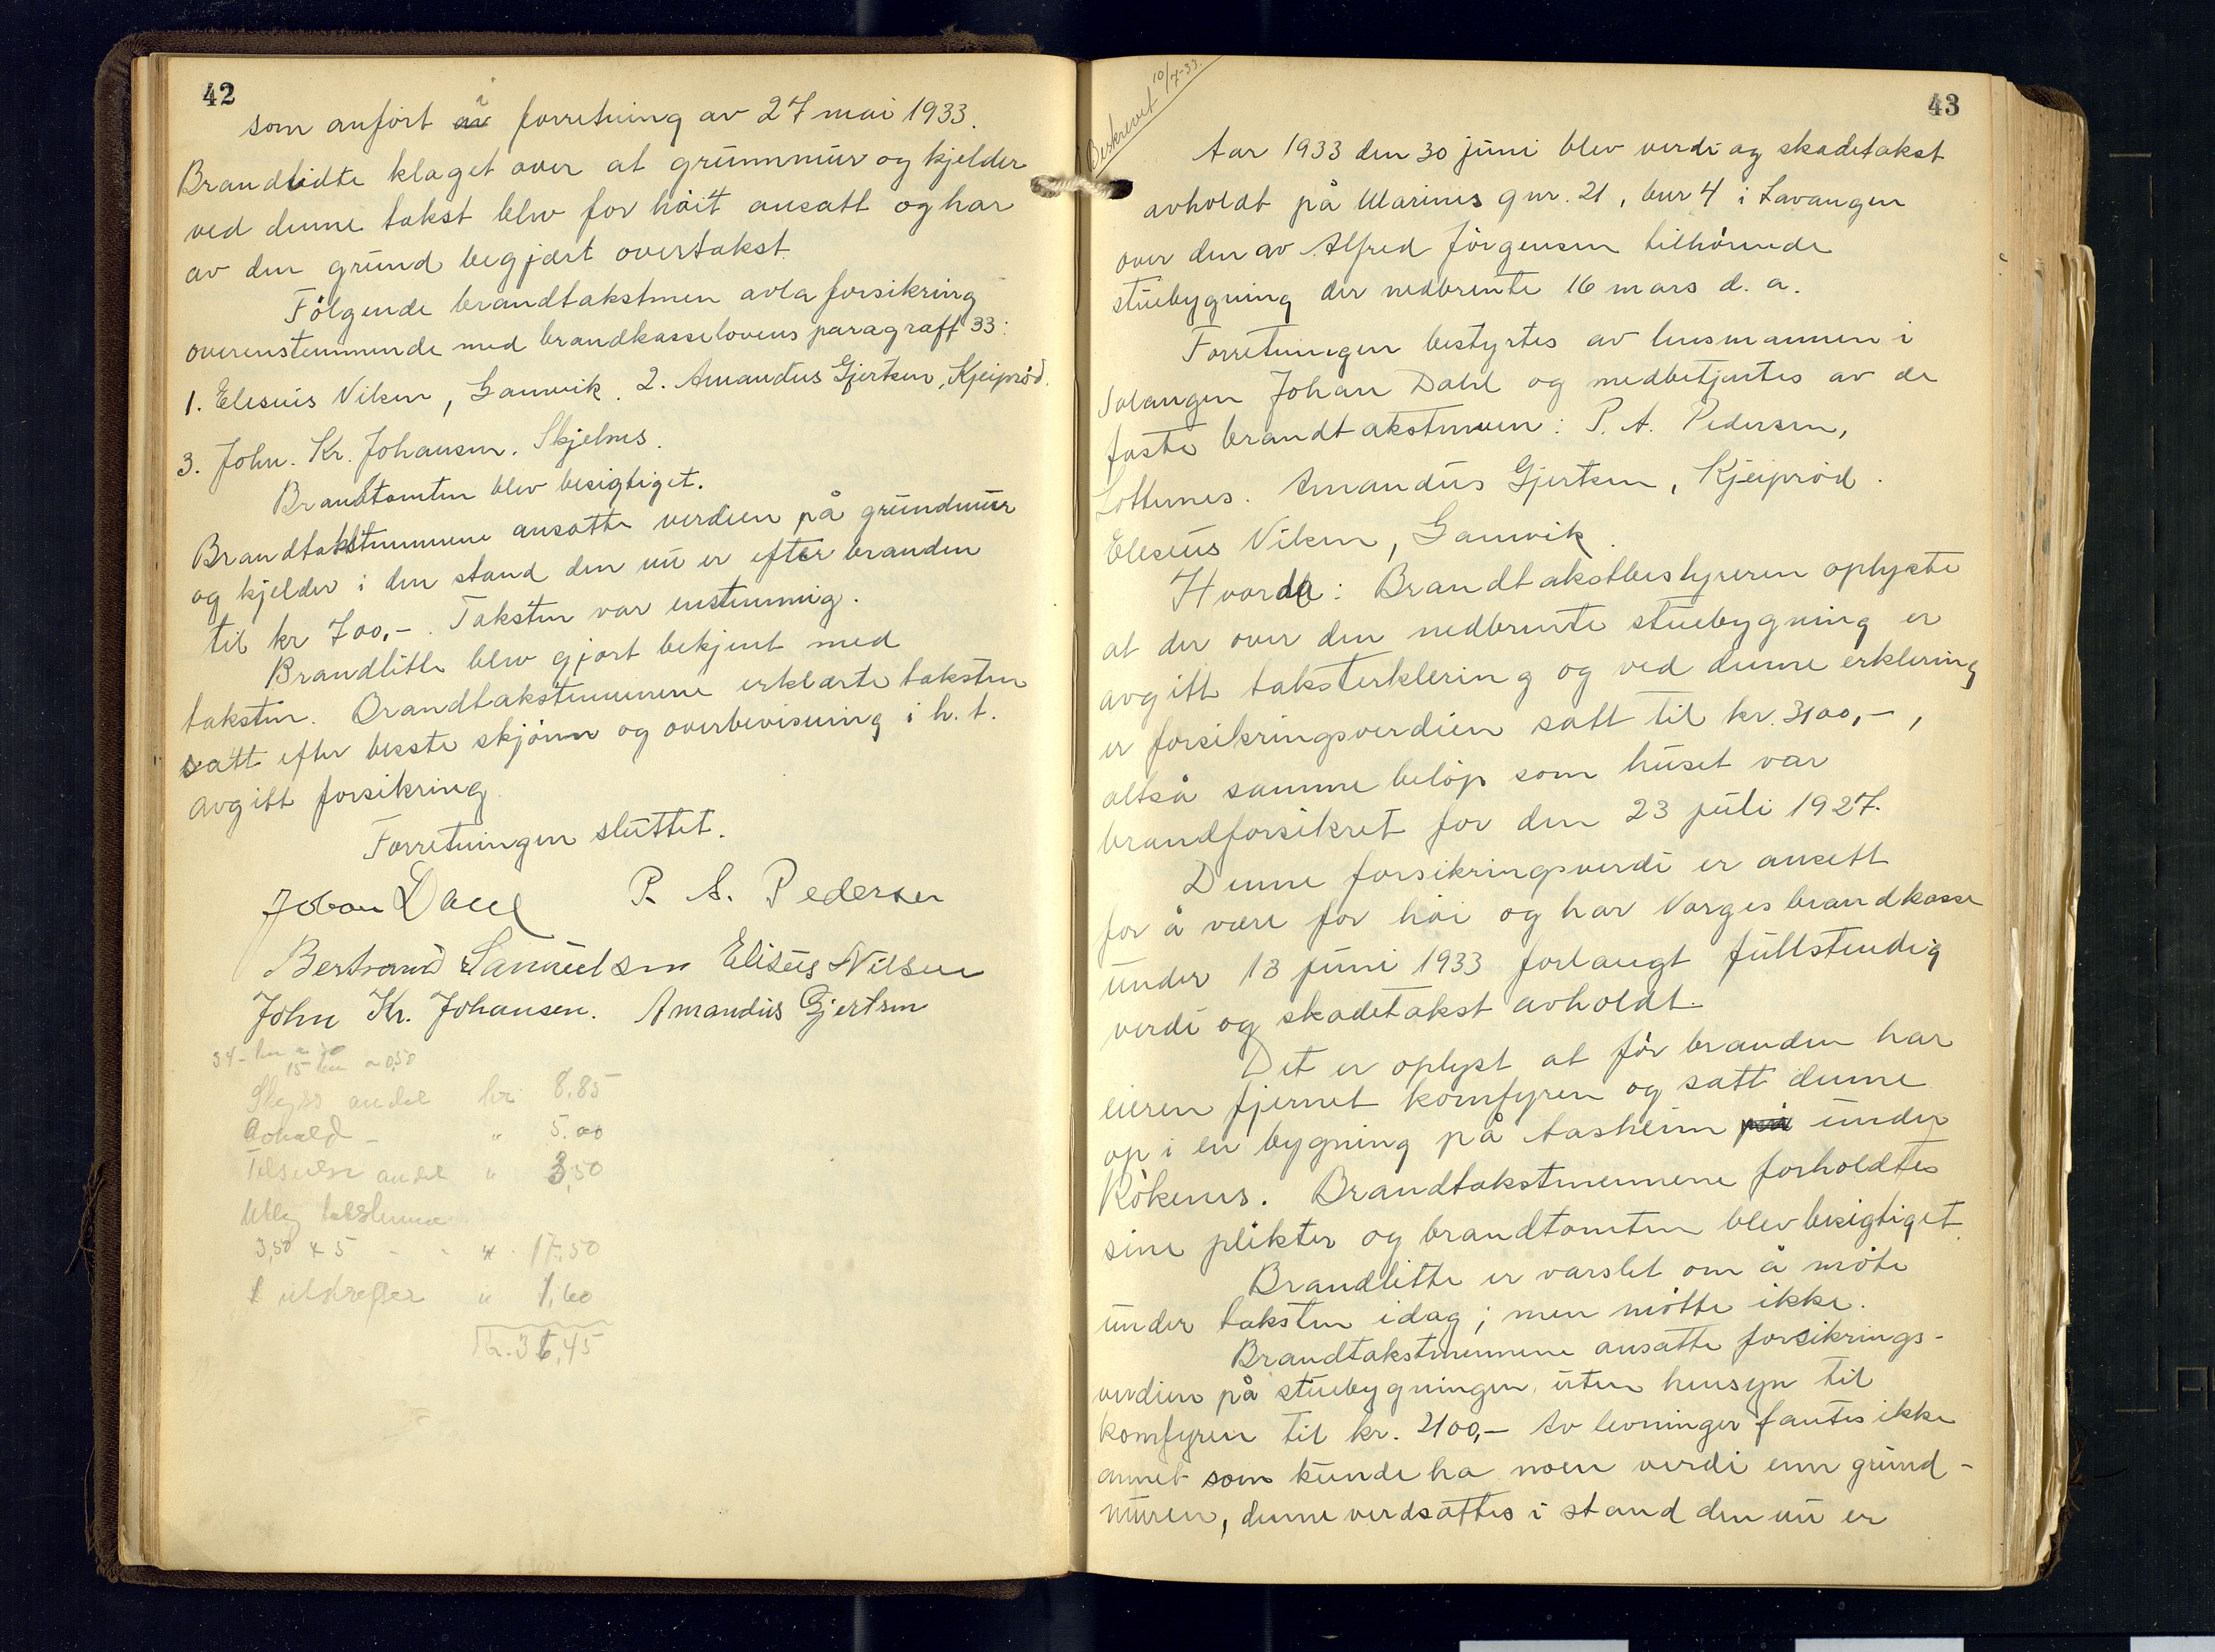 42
som anført i forretning av 27 mai 1933.
Brandlidte klaget over at grunnmur og kjelder
ved denne takst blev for høit ansatt og har
av den grund begjært overtakst.
Følgende brandtakstmen avla forsikring
overenstemmende med brandkasselovens paragraff 33:
1. Eleseus Nilsen, Gamvik. 2. Amandus Gjertsen, Kjeiprød.
3. John. Kr. Johansen. Skjelnes.
Brandtomten blev besigtiget.
Brandtakstmennene ansatte verdien på grundmur
og kjelder i den stand den nu er efter branden
til kr 700,-. Taksten var enstemmig.
Brandlitte blev gjort bekjent med
taksten. Brandtakstmennene erklærte taksten
satt efter beste skjønn og overbevisning i h. t.
avgitt forsikring.
Forretningen sluttet.
Johan Dahl P. A. Pedersen
Bertrand Samuelsen Eliseus Nilsen
John Kr. Johansen. Amandus Gjertsen
34 - km a 30
15 km a 0,50
Skyss andel kr 8.85
Avhold - " 5.00
Tilsieelse andel " 3,50
Utleg takstmenn
3,50 x 5 - - " 17,50
1 utskrefter " 1,60
Kr. 36,45
Beskrevet 10/7-33.
43
Aar 1933 den 30 juni blev verdi og skadetakst
avholdt på Marines gnr. 21, bnr 4 i Lavangen
over den av Alfred Jörgensen tilhörende
stuebygning der nedbrente 16 mars d. a.
Forretningen bestyrtes av lensmannen i
Salangen Johan Dahl og medbetjentes av de
faste brandtakstmenn: P. A. Pedersen,
Löttnes. Amandus Gjertsen, Kjeiprød.
Eleseus Nilsen, Gamvik.
Hvorda: Brandtakstbestyreren oplyste
at der over den nedbrente stuebygning er
avgitt taksterklering og ved denne erklering
er forsikringsverdien satt til kr. 3100,-,
altså samme beløp som huset var
brandforsikret for den 23 juli 1927.
Denne forsikringsverdi er ansett
for å være for høi og har Norges brandkasse
under 13 juni 1933 forlangt fullstendig
verdi og skadetakst avholdt.
Det er oplyst at før branden har
eieren fjernet komfyren og satt denne
op i en bygning på Aasheim under
Rökenes. Brandtakstmennene forholdtes
sine plikter og brandtomten blev besigtiget.
Brandlitte er varslet om å möte
under taksten idag; men mötte ikke.
Brandtakstmennene ansatte forsikrings-
verdien på stuebygningen uten hensyn til
komfyren til kr. 2100,- Av levninger fantes ikke
annet som kunde ha noen verdi enn grund-
muren, denne verdsattes i stand den nu er